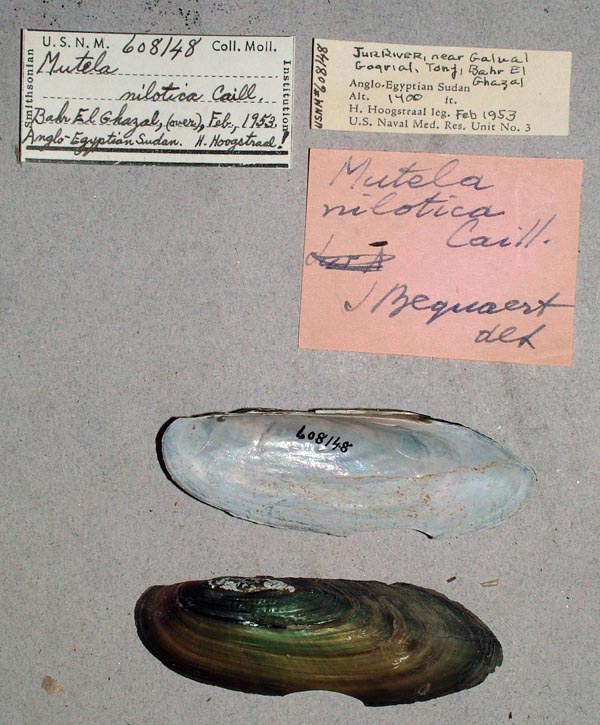 U.S.N.M. 608148 Coll. Moll.
Mutela
nilotica Caill.
Bahr El Ghazal, (over), Feb, 1953
Anglo-Egyptian Sudan. H. Hoogstraal!
Smithsonian
Institution
USNM#608148
JUR RIVER, near Galual
Gogrial, Tonj, Bahr El
Ghazal
Anglo-Egyptian Sudan
Alt. 1400 ft.
H. Hoogstraal leg. Feb 1953
U.S. Naval Med. Res. Unit No. 3
Mutela
nilotica
Caill.
J Bequaert
det
608148